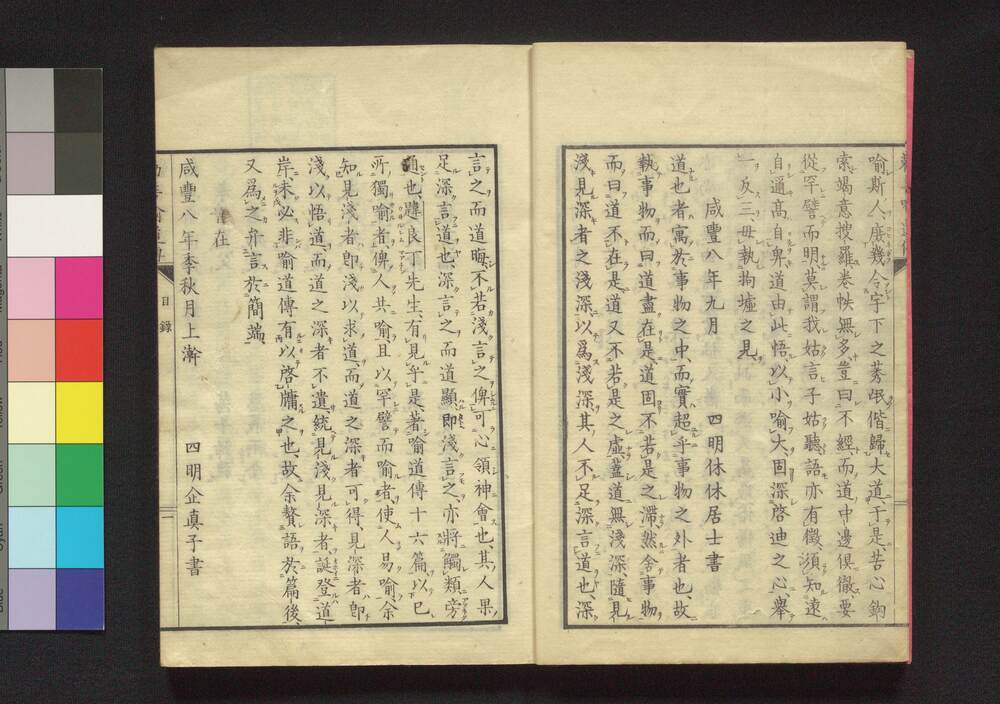 喻斯人、庶幾令宇下之莠氓偕歸大道、于是苦心鉤
索、竭意搜羅、卷帙無多、豈曰不經、而道中邊俱徹、要
從罕譬而明、莫謂我姑言子姑聽、語亦有徵、須知遠
自邇、高自卑、道由此悟、以小喻大、固深啓迪之心、舉
一反三、毋執拘墟之見、
咸豐八年九月 四明休休居士書
道也者、寓於事物之中、而實超乎事物之外者也、故
執事物而曰道盡在是、道固不若是之滯、然舍事物
而曰道不在是、道又不若是之虛、蓋道無淺深、隨見
淺見深者之淺深、以爲淺深、其人不足深言道也、深
言之而道晦、不若淺言之、俾可心領神會也、其人果
足深言道也、深言之而道顯、即淺言之、亦將觸類旁
通也、韙良丁先生、有見乎是、著喻道傳十六篇、以已
所獨喻者、俾人共喻、且以罕譬而喻者、使人易喻、余
知見淺者、即淺以求道、而道之深者可得、見深者、即
淺以悟道、而道之深者不遺、統見淺見深者、誕登道
岸、未必非喻道傳有以啓牖之也、故余贅語於篇後、
又爲之弁言於簡端、
咸豐八年季秋月上澣 四明企真子書
目錄
一